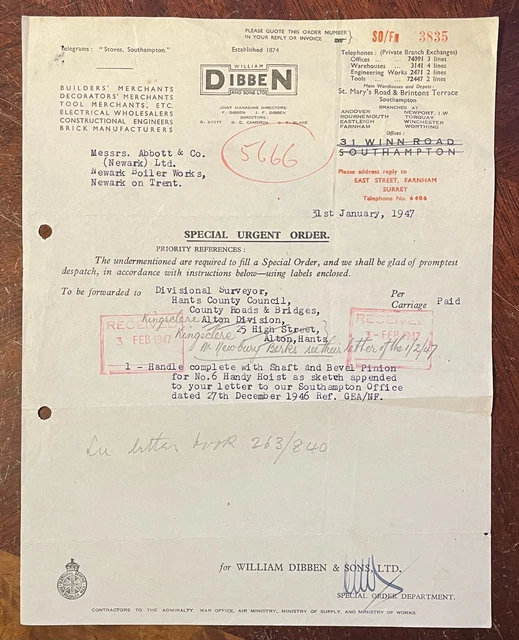 PLEASE QUOTE THIS ORDER NUMBER
IN YOUR REPLY OR INVOICE
SO/FM 3835
Telegrams: "Stoves, Southampton."
Established 1874
Telephones: (Private Branch Exchanges)
Offices ... ... 74991 3 lines
Warehouses ... 3141 4 lines
Engineering Works 2471 2 lines
Tools ... ... 72447 2 lines
Main Warehouses and Depots:
St. Mary's Road & Brintons Terrace
Southampton
BRANCHES AT
ANDOVER NEWPORT, I.W.
BOURNEMOUTH TORQUAY
EASTLEIGH WINCHESTER
FARNHAM WORTHING
Offices:
31 WINN ROAD
SOUTHAMPTON
Please address reply to
EAST STREET, FARNHAM
SURREY
Telephone No. 6406
WILLIAM
DIBBEN
AND SONS LTD
JOINT MANAGING DIRECTORS
F. DIBBEN J. F. DIBBEN
DIRECTORS
G. SCOTT D. C. CAMERON
BUILDERS' MERCHANTS
DECORATORS' MERCHANTS
TOOL MERCHANTS, ETC
ELECTRICAL WHOLESALERS
CONSTRUCTIONAL ENGINEERS
BRICK MANUFACTURERS
5666
Messrs. Abbott & Co.
(Newark) Ltd.
Newark Boiler Works,
Newark on Trent.
31st January, 1947
SPECIAL URGENT ORDER.
PRIORITY REFERENCES:
The undermentioned are required to fill a Special Order, and we shall be glad of promptest
despatch, in accordance with instructions below—using labels enclosed.
To be forwarded to Divisional Surveyor,
Hants County Council,
County Roads & Bridges,
Kingsclere Alton Division,
25 High Street,
Kingsclere Alton, Hants
Nr Newbury Berks see their letter of the 1/2/47
Per
Carriage Paid
RECEIVED
3 FEB 1947
RECEIVED
3 - FEB 1947
1 - Handle complete with Shaft and Bevel Pinion
for No.6 Handy Hoist as sketch appended
to your letter to our Southampton Office
dated 27th December 1946 Ref. GEA/NF.
See letter book 263/840
for WILLIAM DIBBEN & SONS, LTD.
SPECIAL ORDER DEPARTMENT.
CONTRACTORS TO THE ADMIRALTY, WAR OFFICE, AIR MINISTRY, MINISTRY OF SUPPLY, AND MINISTRY OF WORKS